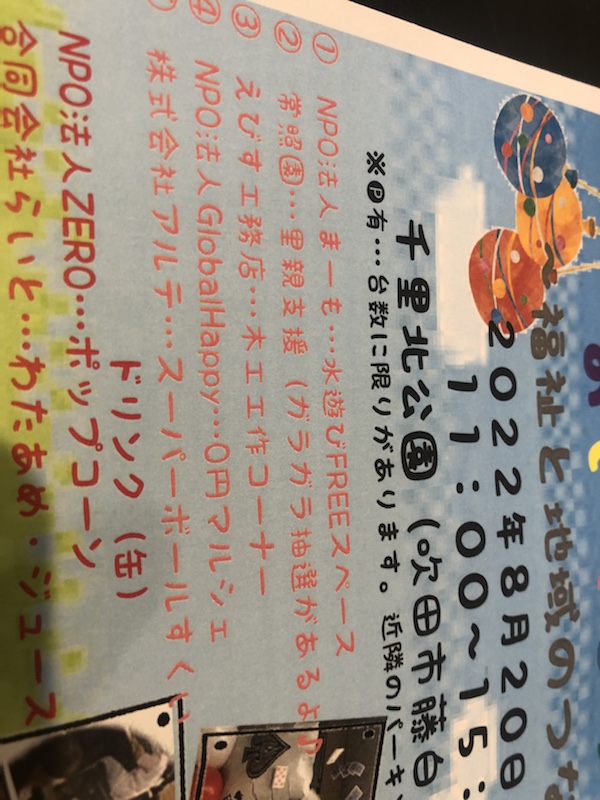 ～福祉と地域のつな
2022年8月20日
11:00~15:
千里北公園（吹田市藤白
※Ⓟ有…台数に限りがあります。近隣のパーキ
① NPO法人まーも…水遊びFREEスペース
② 常照園…里親支援（ガラガラ抽選があるよ♪
③ えびす工務店…木工工作コーナー
④ NPO法人GlobalHappy…0円マルシェ
株式会社アルテ…スーパーボールすくい
ドリンク（缶）
NPO法人ZERO…ポップコーン
合同会社らいと…わたあめ・ジュース